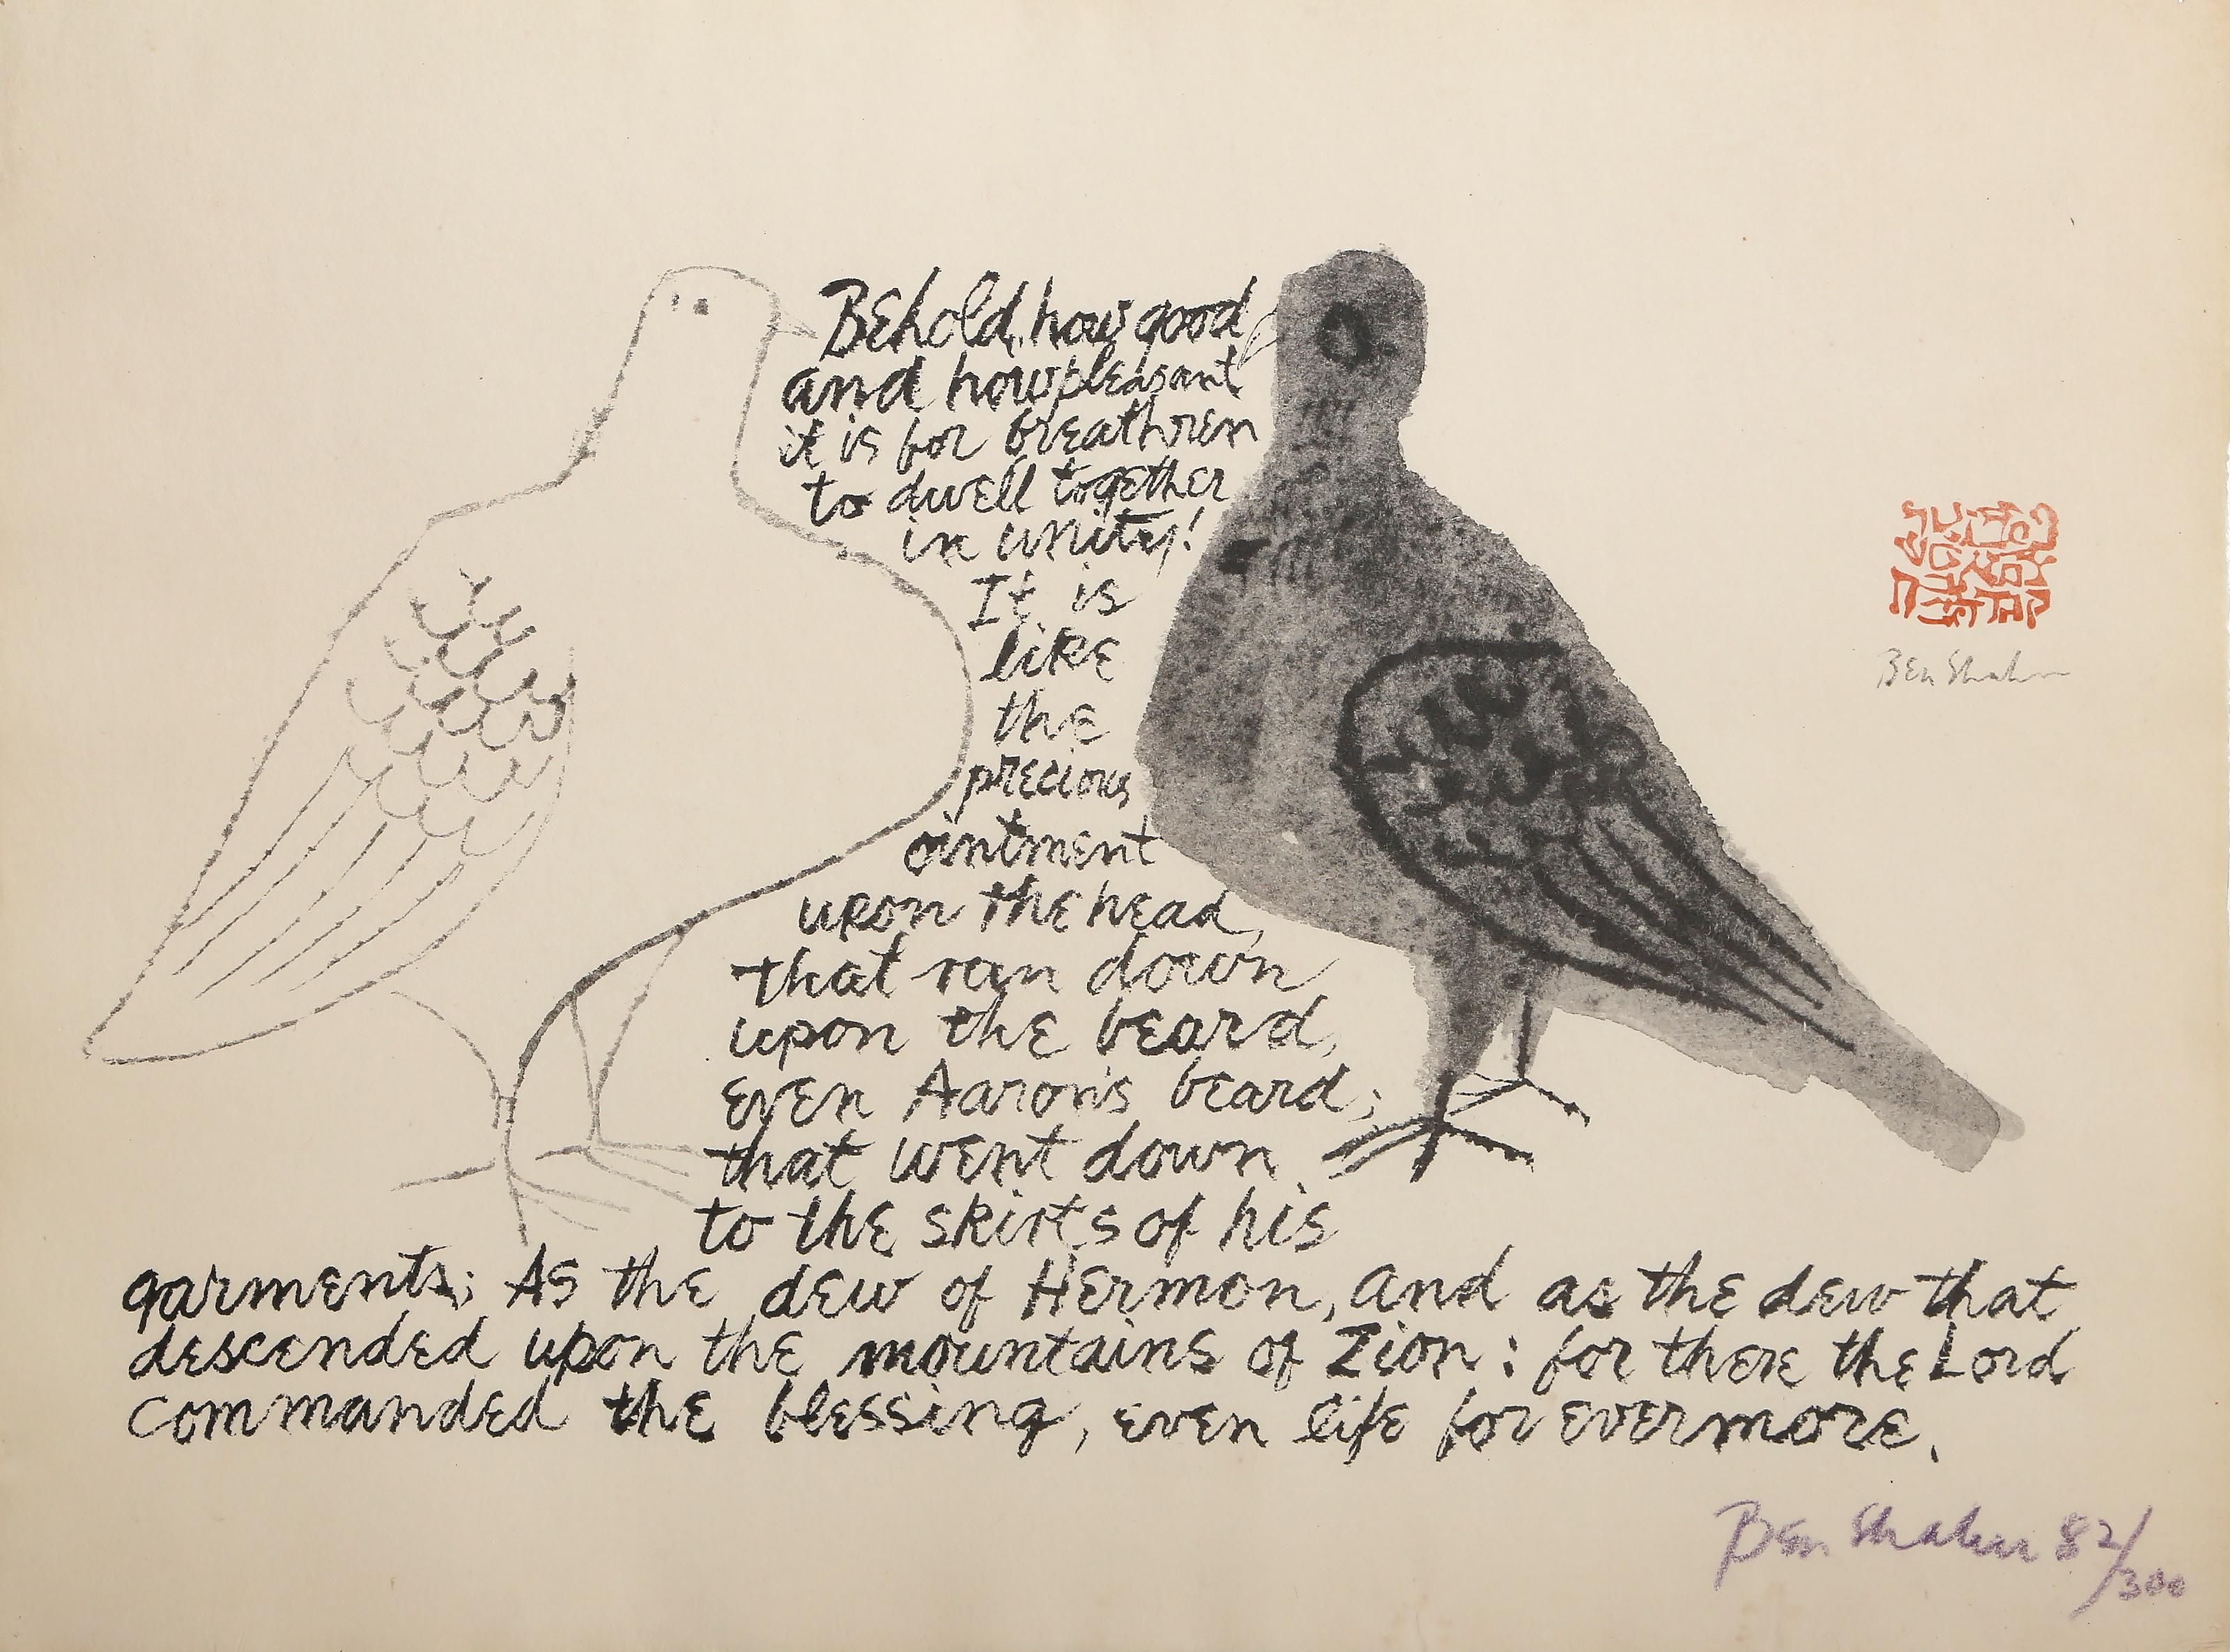 Behold, how good
and how pleasant
it is for breathren
to dwell together
in unity!
It is
like
the
precious
ointment
upon the head,
that ran down
upon the beard,
even Aaron's beard;
that went down
to the skirts of his
garments; As the dew of Hermon, and as the dew that
descended upon the mountains of Zion: for there the Lord
commanded the blessing, even life for evermore.
Ben Shahn
Ben Shahn 82/300